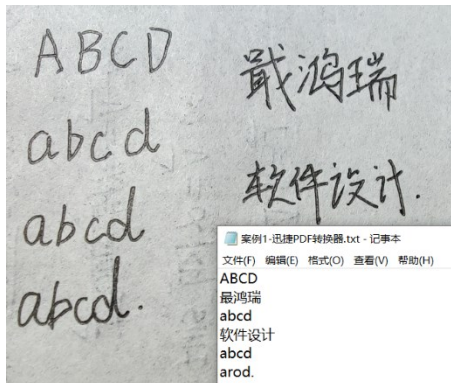 ABCD
戢鸿瑞
abcd
软件设计.
abcd
abcd.
案例1-迅捷PDF转换器.txt - 记事本
文件(F) 编辑(E) 格式(O) 查看(V) 帮助(H)
ABCD
最鸿瑞
abcd
软件设计
abcd
arod.